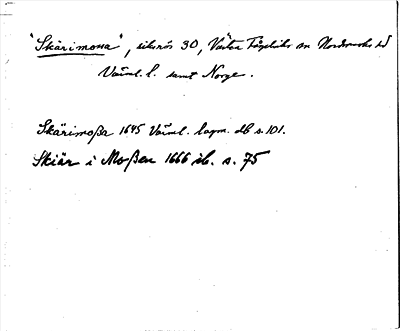 "Skärimossa", riksrös 30, Västra Fågelvik sn Nordmarks hd
Värml. l. samt Norge.
Skärimoßa 1645 Värml. lagm. db s. 101.
Skiär i Moßen 1666 ib. s. 75